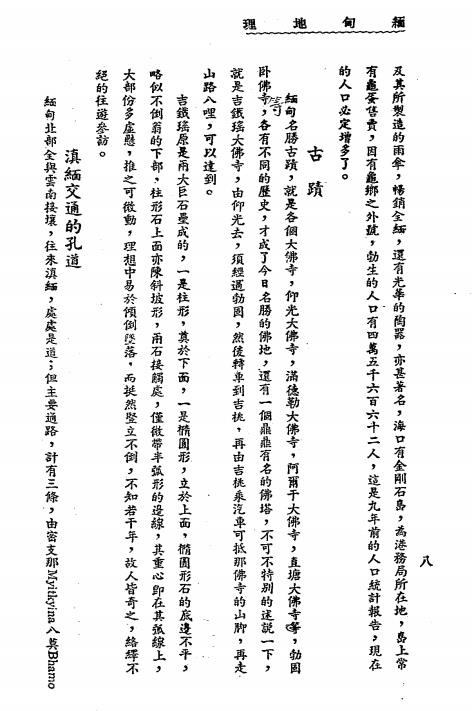 緬甸地理
八
及其所製造的雨傘，暢銷全緬，還有光華的陶器，亦甚著名，海口有金剛石島，為港務局所在地，島上常
有龜蛋售賣，因有龜鄉之外號，勃生的人口有四萬五千六百六十二人，這是九年前的人口統計報告，現在
的人口必定增多了。
古蹟
緬甸名勝古蹟，就是各個大佛寺，仰光大佛寺，滿德勒大佛寺，阿爾干大佛寺，直塘大佛寺等，勃固
卧佛寺等，各有不同的歷史，才成了今日名勝的佛地，還有一個鼎鼎有名的佛塔，不可不特別的述說一下，
就是吉鐵瑤大佛寺，由仰光去，須經過勃固，然後轉車到吉桃，再由吉桃乘汽車可抵那佛寺的山脚，再走
山路八哩，可以達到。
吉鐵瑤原是兩大巨石壘成的，一是柱形，奠於下面，一是橢圓形，立於上面，橢圓形石的底邊不平，
略似不倒翁的下部，柱形石上面亦陳斜坡形，兩石接觸處，僅微帶半弧形的邊線，其重心即在其弧線上，
大部份多虛懸，推之可微動，理想中易於傾倒墜落，而挺然豎立不倒，不知若干年，故人皆奇之，絡繹不
絕的往遊參訪。
滇緬交通的孔道
緬甸北部全與雲南接壤，往來滇緬，處處是道；但主要通路，計有三條，由密支那Myitkyina八莫Bhamo